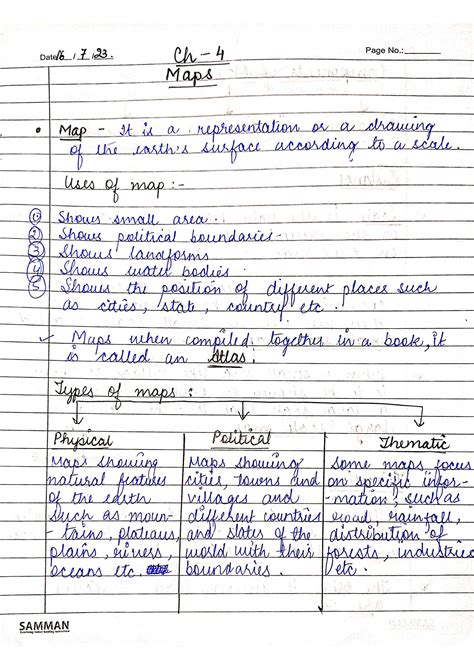 Date 16 / 7 / 23.
Ch - 4
Page No.:
Maps
• Map - It is a representation or a drawing
of the earth's surface according to a scale.
Uses of map :-
① Shows small area.
② Shows political boundaries-
③ Shows landforms.
④ Shows water bodies.
⑤ Shows the position of different places such
as cities, state, country etc.
✓ Maps when compiled together in a book, it
is called an Atlas.
Types of maps :
Physical
Maps showing
natural features
of the earth
such as moun-
tains, plateaus,
plains, rivers,
oceans etc.
Political
Maps showing
cities, towns and
villages and
different countries
and states of the
world with their
boundaries.
Thematic
Some maps focus
on specific infor-
mation, such as
road, rainfall,
distribution of
forests, industries
etc.
SAMMAN